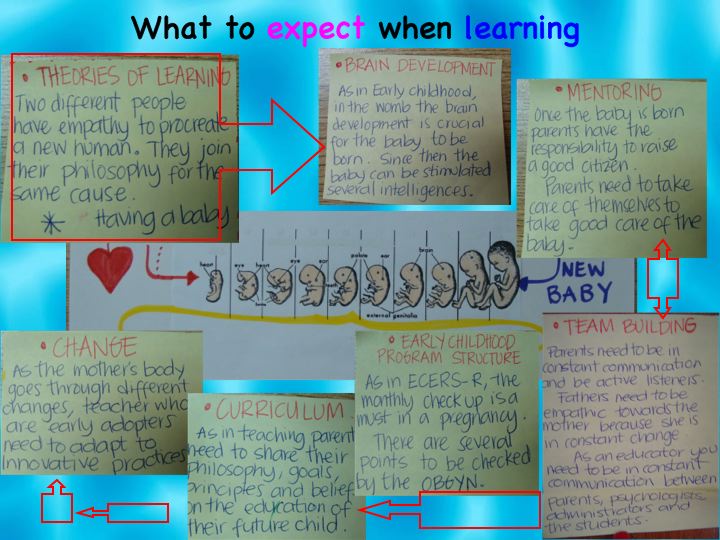 What to expect when learning
• THEORIES OF LEARNING
Two different people
have empathy to procreate
a new human. They join
their philosophy for the
same cause.
* Having a baby
• BRAIN DEVELOPMENT
As in Early childhood,
in the womb the brain
development is crucial
for the baby to be
born. Since then the
baby can be stimulated
several intelligences.
• MENTORING
Once the baby is born
parents have the
responsibility to raise
a good citizen.
Parents need to take
care of themselves to
take good care of the
baby.
heart
eye
heart
eye
ear
palate
ear
brain
teeth
external genitalia
NEW
BABY
• CHANGE
As the mother's body
goes through different
changes, teacher who
are early adopters
need to adapt to
innovative practices
• CURRICULUM
As in teaching parent
need to share their
philosophy, goals,
principles and belief
on the education of
their future child.
• EARLY CHILDHOOD
PROGRAM STRUCTURE
As in ECERS-R, the
monthly check up is a
must in a pregnancy.
There are several
points to be checked
by the OBGYN.
• TEAM BUILDING
Parents need to be in
constant communication
and be active listeners.
Fathers need to be
empathic towards the
mother because she is
in constant change.
As an educator you
need to be in constant
communication between
parents, psychologists,
administrators and
the students.